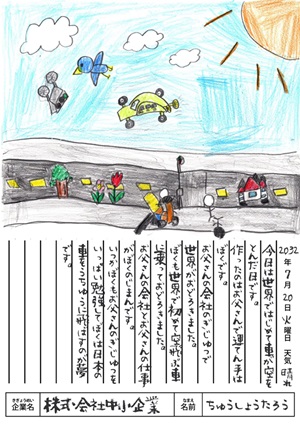 2032年7月20日火曜日 天気 晴れ
今日は世界ではじめて車が空を
とんだ日です。
作ったのはお父さんで運てん手は
ぼくです。
お父さんの会社のぎじゅつで
世界がおどろきました。
ぼくも世界で初めて空飛ぶ車
に乗っておどろきました。
お父さんの会社とお父さんの仕事
がぼくのじまんです。
いつかぼくもお父さんのぎじゅつを
いっぱい勉強してぼくは日本の
車をうちゅうに飛ばすのが夢
です。
きぎょうめい
企業名 株式会社中小企業
なまえ
名前 ちゅうしょうたろう